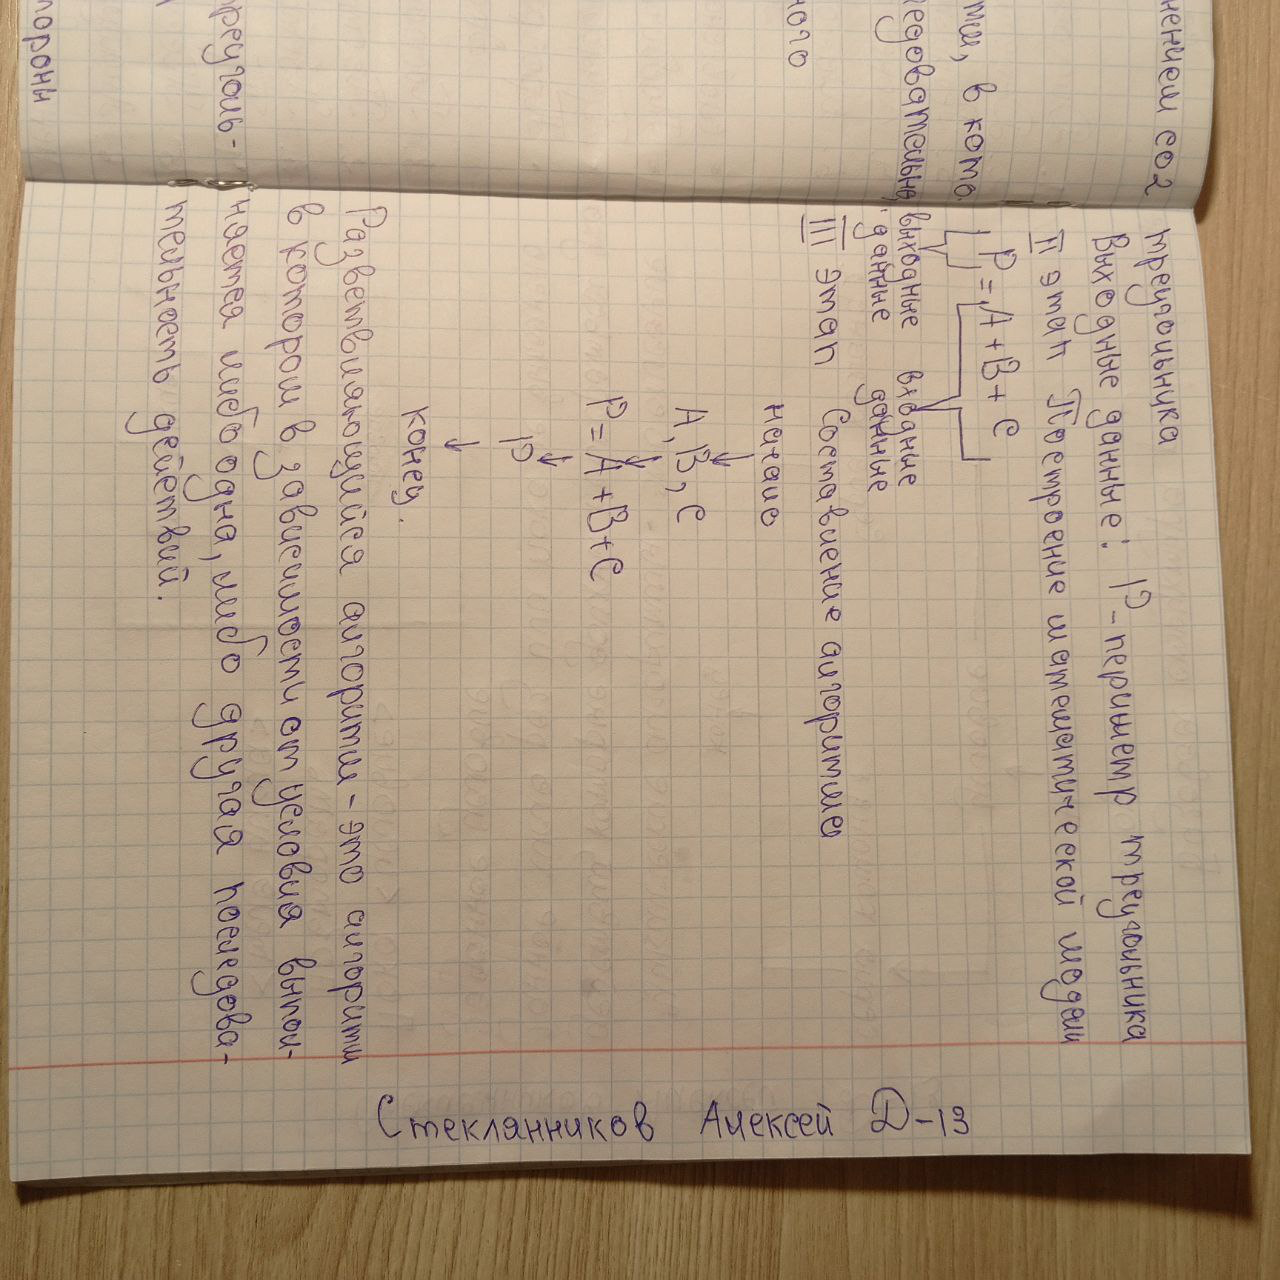 нением со2
тми, в кото
ледовательно,
ного
реуголь-
лорони
треугольника
Выходные данные: P - периметр треугольника
II этап Построение математической модели
P = A + B + C
выходные данные
входные данные
III этап Составление алгоритма
начало
↓
A, B, C
↓
P = A + B + C
↓
P
↓
конец.
Разветвляющийся алгоритм - это алгоритм
в котором в зависимости от условия выпол-
няется либо одна, либо другая последова-
тельность действий.
Стеклянников Алексей Д-13